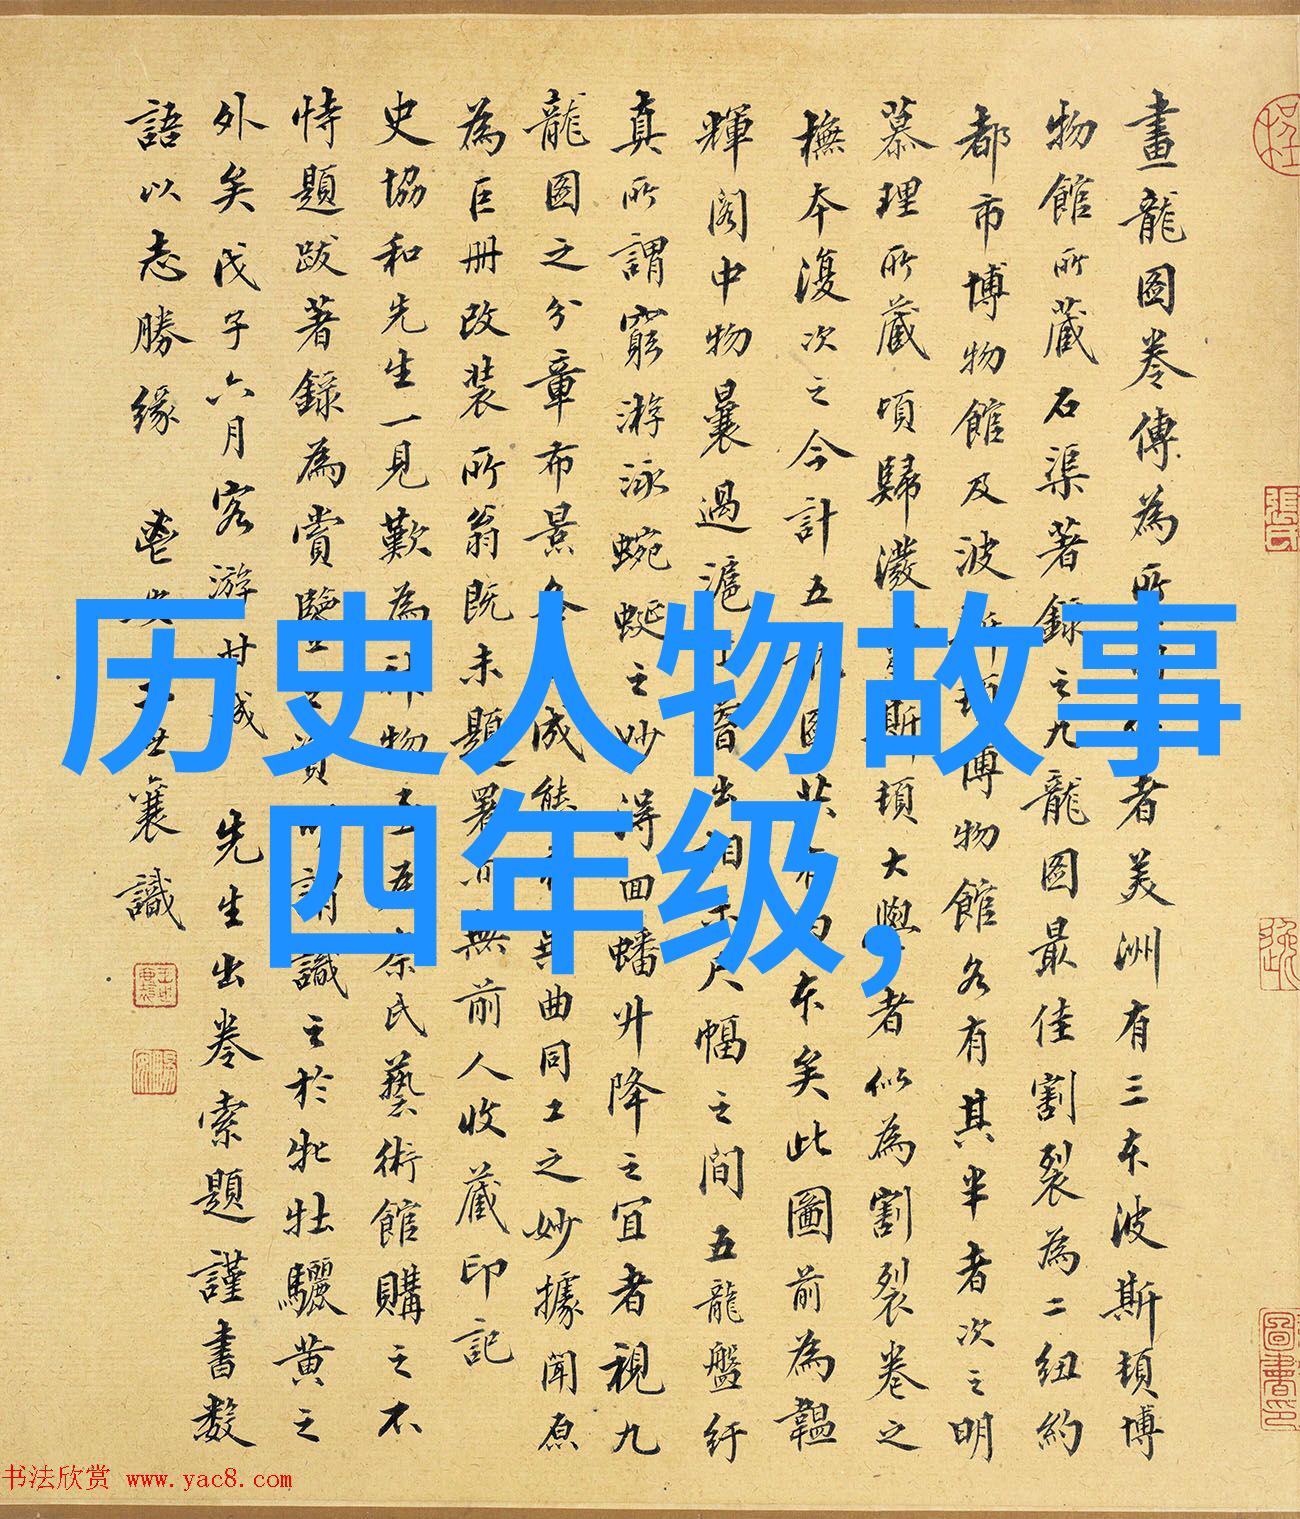 畫龍圖卷傳為所
者美洲有三本波斯頓博
物館所藏石渠著錄之九龍圖最佳割裂為二紐約
都市博物館及波
博物館各有其半者次之明
慕理所藏頃歸
斯頓大學者似為割裂卷之
橅本復次之今計五
本矣此圖前為韞
輝閣中物曩過滬
尺幅之間五龍盤紆
真所謂窮游泳蜿蜒之妙得回蟠升降之宜者視九
龍圖之分章布景各成
曲同工之妙據聞原
為巨冊改裝所翁既未題署
無前人收藏印記
史協和先生一見歎為
物
余氏藝術館購之不
恃題跋著錄為賞鑒
識之於牝牡驪黃之
外矣戊子六月客游
先生出卷索題謹書數
語以志勝緣
襄識
历史人物故事
四年级,
书法欣赏 www.yac8.com